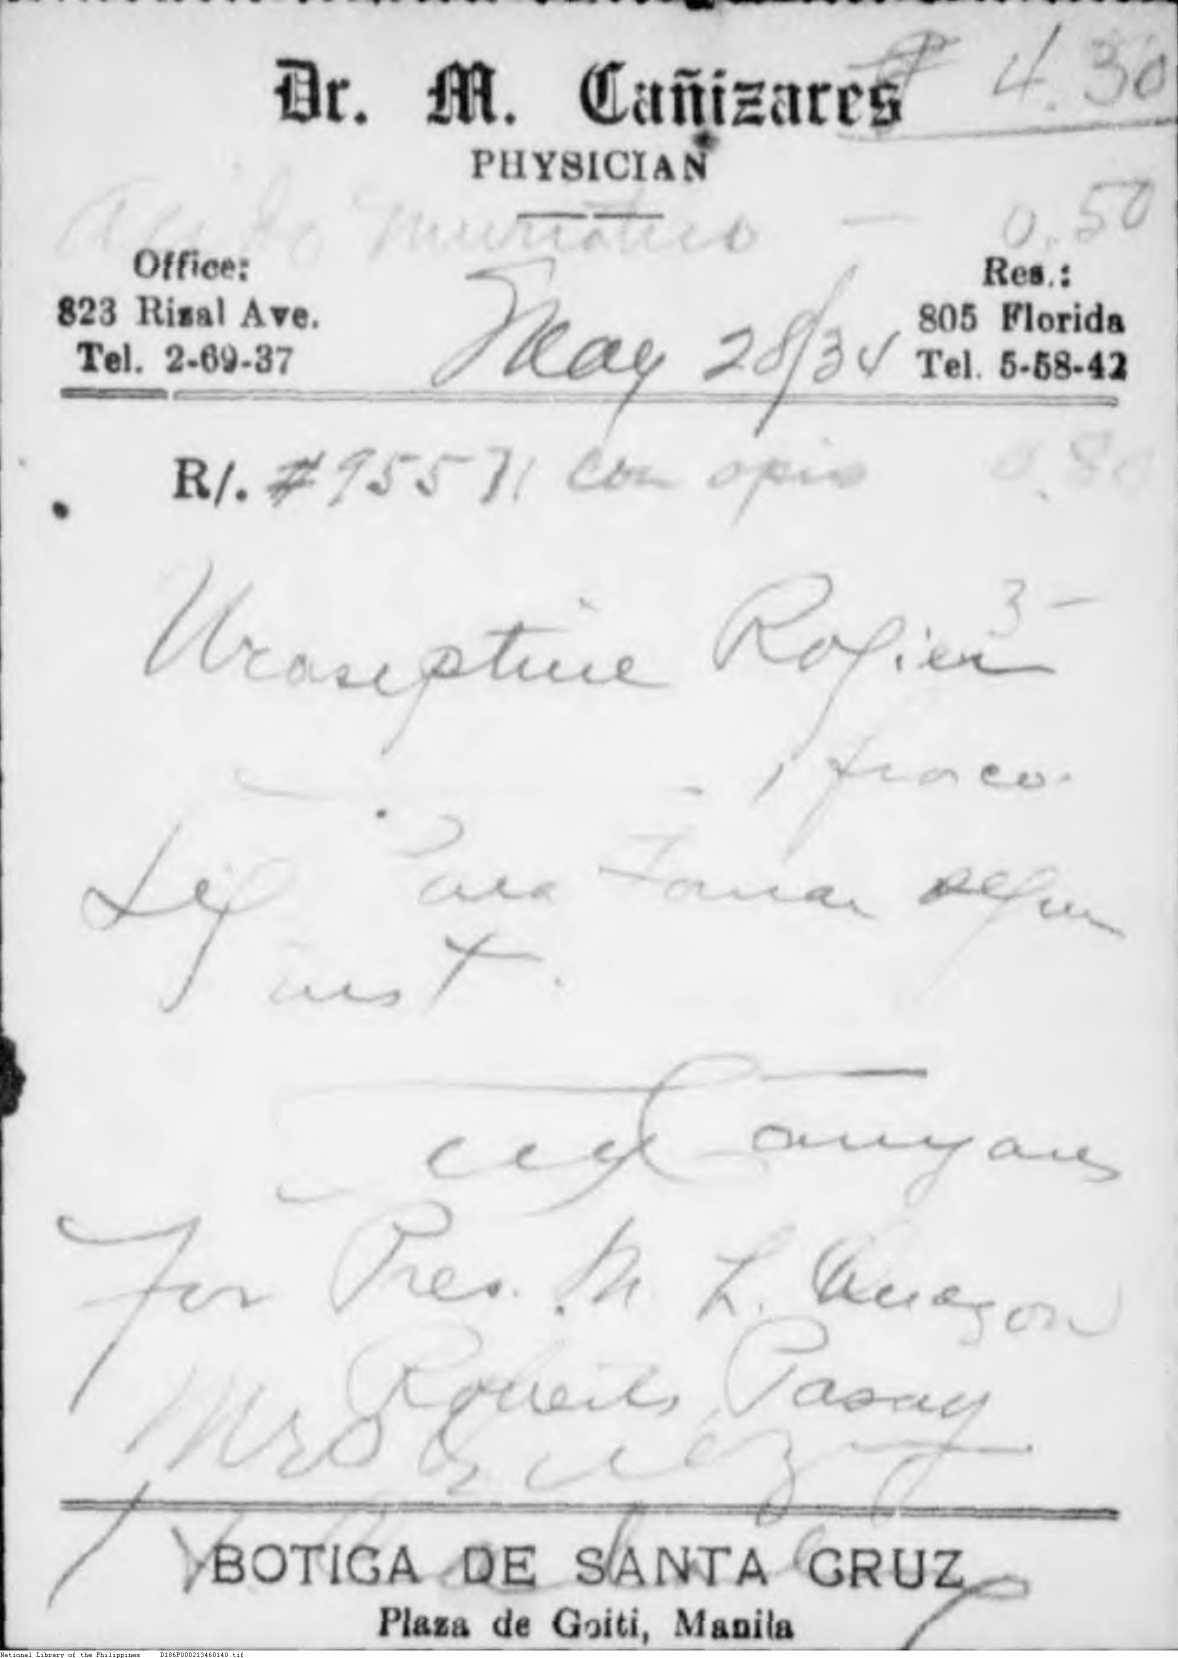 ₱ 4.30
Dr. M. Cañizares
PHYSICIAN
Acido Muriatico — 0.50
Office:
823 Rizal Ave.
Tel. 2-69-37
May 28/34
Res.:
805 Florida
Tel. 5-58-42
R/. #95571 con opio 0.80
Uraseptine Rogier 3-
1 frasco.
Sig Para Tomar segun
inst.
Canizares
For Pres. M. L. Quezon
Roberts, Pasay
Mrs Quezon
BOTICA DE SANTA CRUZ
Plaza de Goiti, Manila
National Library of the Philippines D186P000213460140.tif